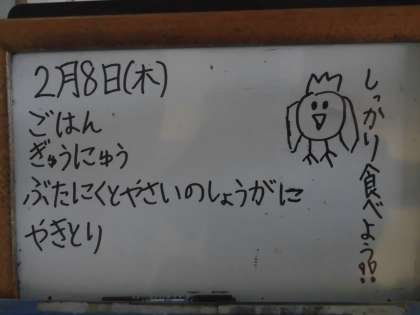 2月8日(木)
ごはん
ぎゅうにゅう
ぶたにくとやさいのしょうがに
やきとり
しっかり食べよう!!